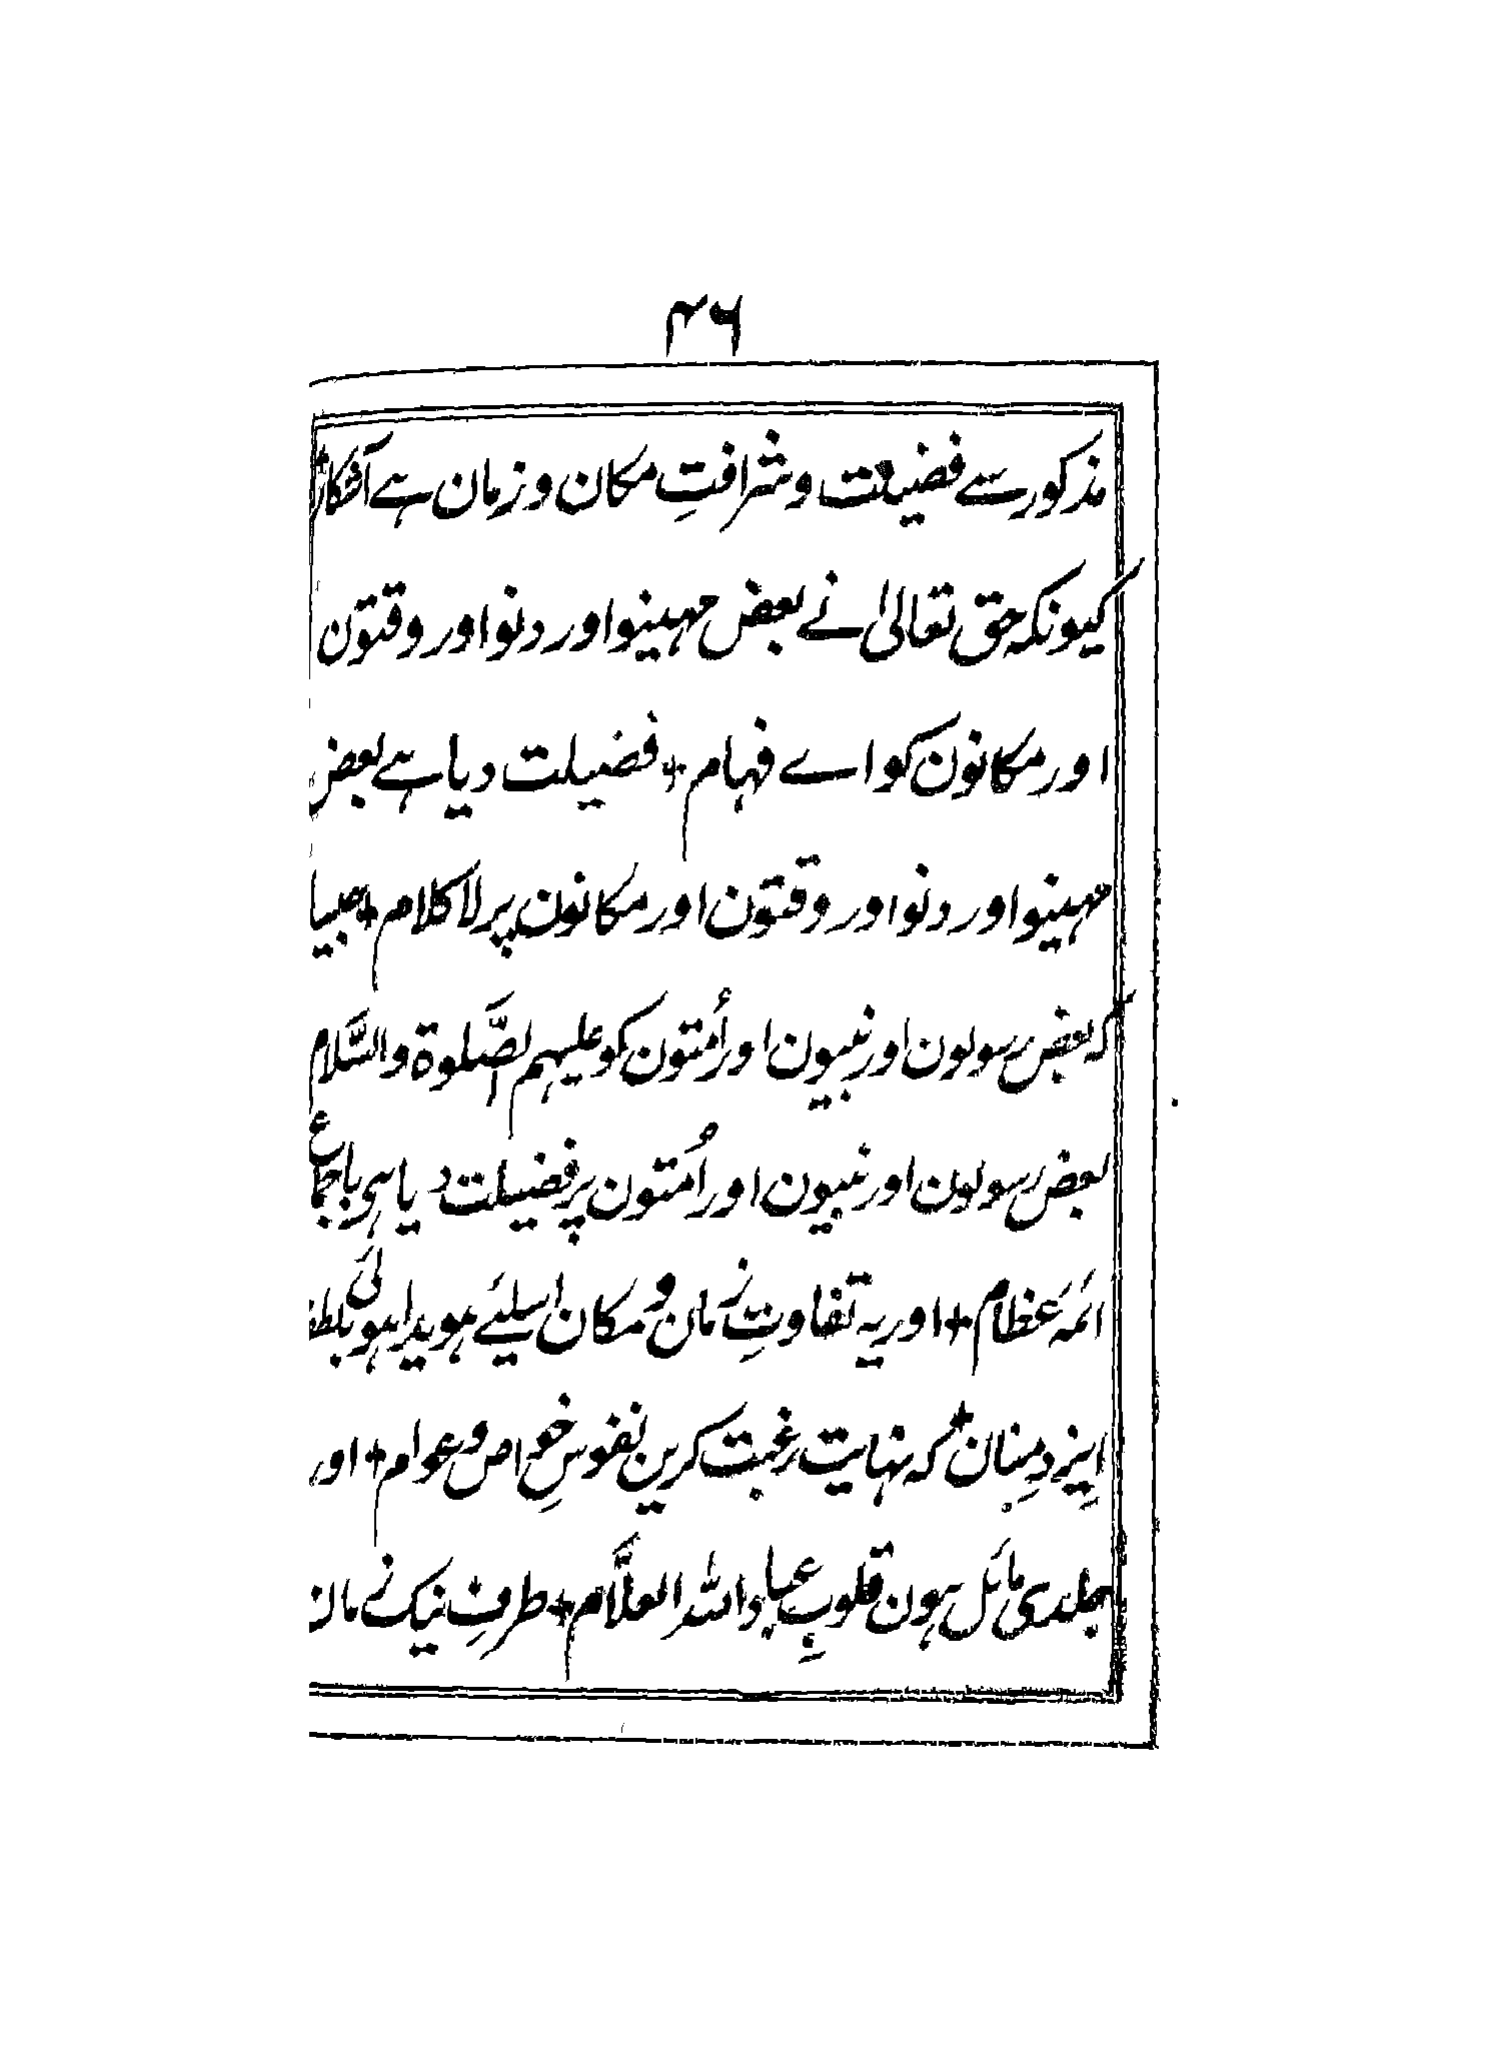 ۴۶
مذکور سے فضیلت و شرافتِ مکان و زمان ہے آشکار
کیونکہ حق تعالیٰ نے بعض مہینو اور دنو اور وقتون
اور مکانون کو اے فہام + فضیلت دیا ہے بعض
مہینو اور دنو اور وقتون اور مکانون پر لا کلام + جیسا
کہ بعض رسولون اور نبیون اور اُمتون کو علیہم الصَّلوۃ والسَّلام
بعض رسولون اور نبیون اور اُمتون پر فضیلت دیا ہی باجماع
ائمہ عظام + اور یہ تفاوتِ زمان و مکان اسلئے ہویدا ہوئی
ایزدِ منان + کہ نہایت رغبت کرین نفوسِ خواص و عوام + اور
جلدی مائل ہون قلوبِ عباد اللہ العلَّام + طرفِ نیک